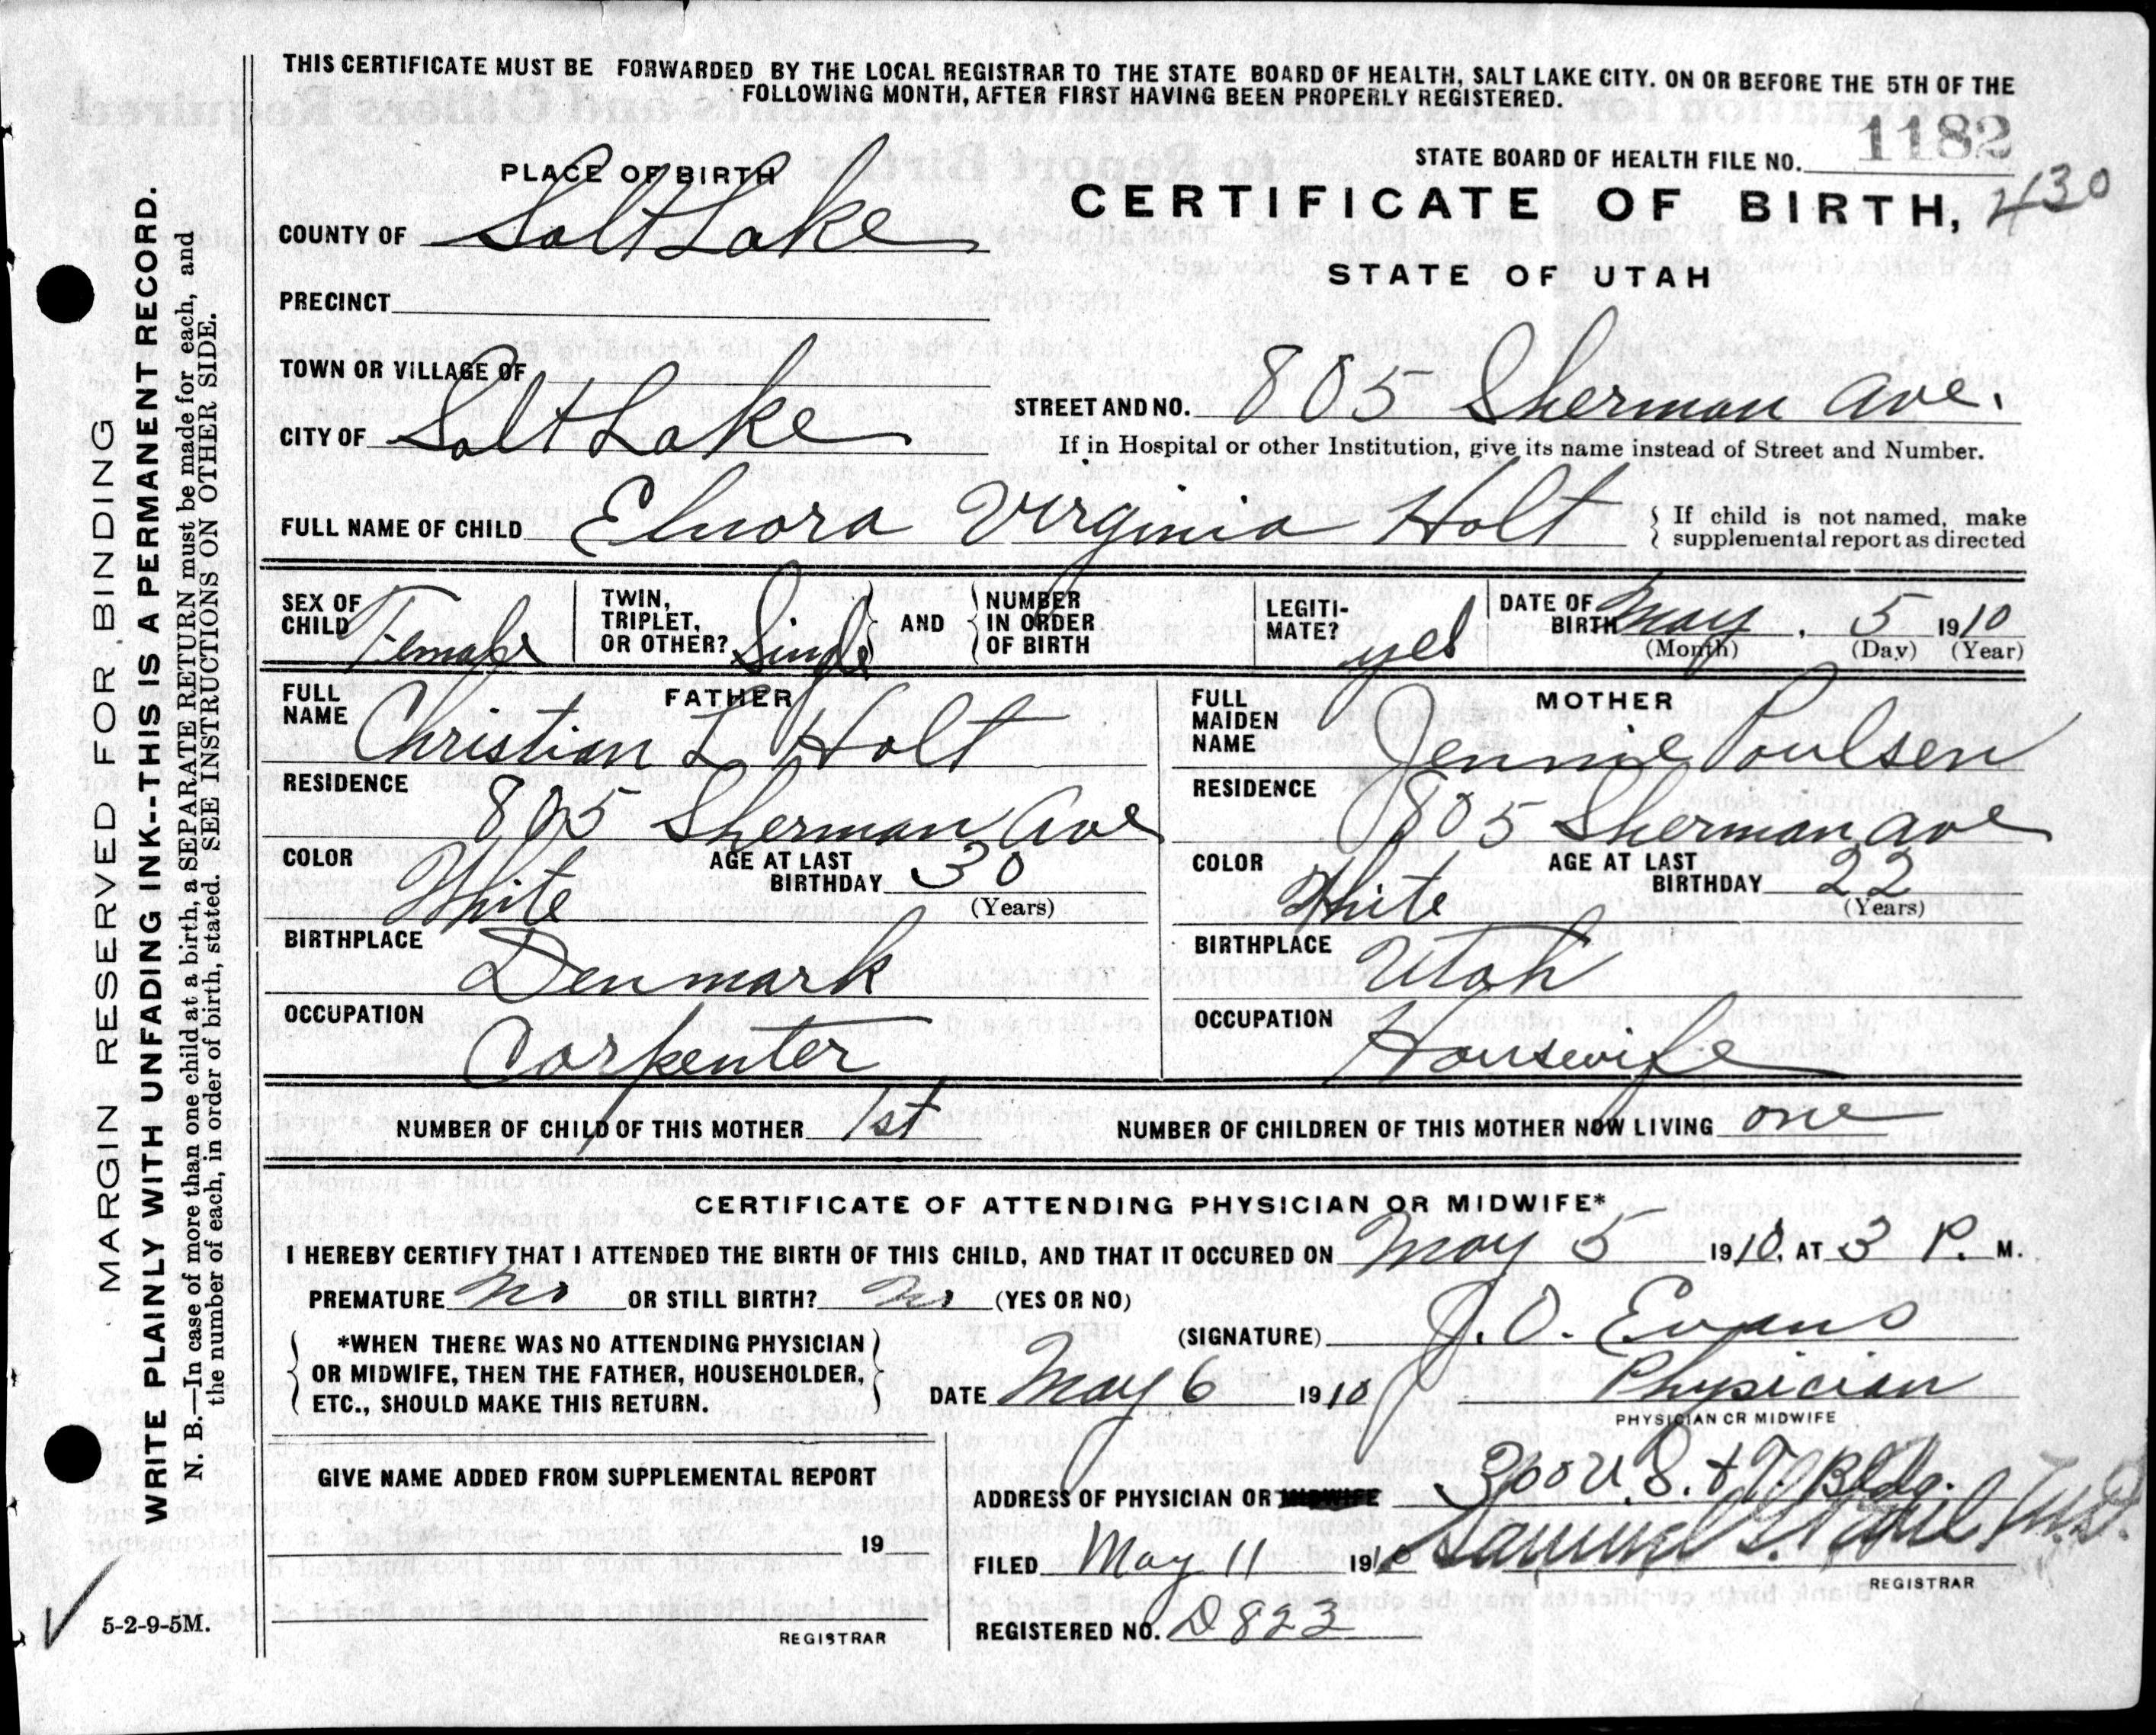 THIS CERTIFICATE MUST BE FORWARDED BY THE LOCAL REGISTRAR TO THE STATE BOARD OF HEALTH, SALT LAKE CITY. ON OR BEFORE THE 5TH OF THE
FOLLOWING MONTH, AFTER FIRST HAVING BEEN PROPERLY REGISTERED.
STATE BOARD OF HEALTH FILE NO. 1182
PLACE OF BIRTH
CERTIFICATE OF BIRTH, 430
COUNTY OF Salt Lake
STATE OF UTAH
PRECINCT
TOWN OR VILLAGE OF
STREET AND NO. 805 Sherman Ave.
CITY OF Salt Lake
If in Hospital or other Institution, give its name instead of Street and Number.
FULL NAME OF CHILD Elnora Virginia Holt
If child is not named, make
supplemental report as directed
SEX OF CHILD Female
TWIN, TRIPLET, OR OTHER? Single
AND
NUMBER IN ORDER OF BIRTH
LEGITI-MATE? yes
DATE OF BIRTH May 5 1910
(Month) (Day) (Year)
FATHER
FULL NAME Christian L Holt
RESIDENCE 805 Sherman Ave
COLOR White
AGE AT LAST BIRTHDAY 30
(Years)
BIRTHPLACE Denmark
OCCUPATION Carpenter
MOTHER
FULL MAIDEN NAME Jennie Poulsen
RESIDENCE 805 Sherman Ave
COLOR White
AGE AT LAST BIRTHDAY 22
(Years)
BIRTHPLACE Utah
OCCUPATION Housewife
NUMBER OF CHILD OF THIS MOTHER 1st
NUMBER OF CHILDREN OF THIS MOTHER NOW LIVING one
CERTIFICATE OF ATTENDING PHYSICIAN OR MIDWIFE*
I HEREBY CERTIFY THAT I ATTENDED THE BIRTH OF THIS CHILD, AND THAT IT OCCURED ON May 5 1910, AT 3 P. M.
PREMATURE No OR STILL BIRTH? No (YES OR NO)
*WHEN THERE WAS NO ATTENDING PHYSICIAN
OR MIDWIFE, THEN THE FATHER, HOUSEHOLDER,
ETC., SHOULD MAKE THIS RETURN.
(SIGNATURE) J. O. Evans
DATE May 6 1910
Physician
PHYSICIAN OR MIDWIFE
GIVE NAME ADDED FROM SUPPLEMENTAL REPORT
19
REGISTRAR
ADDRESS OF PHYSICIAN OR MIDWIFE U. S. & T. Bldg.
FILED May 11 1910 Samuel G. Paul M.D.
REGISTRAR
REGISTERED NO. D 823
MARGIN RESERVED FOR BINDING
WRITE PLAINLY WITH UNFADING INK--THIS IS A PERMANENT RECORD.
N. B.—In case of more than one child at a birth, a SEPARATE RETURN must be made for each, and
the number of each, in order of birth, stated. SEE INSTRUCTIONS ON OTHER SIDE.
5-2-9-5M.